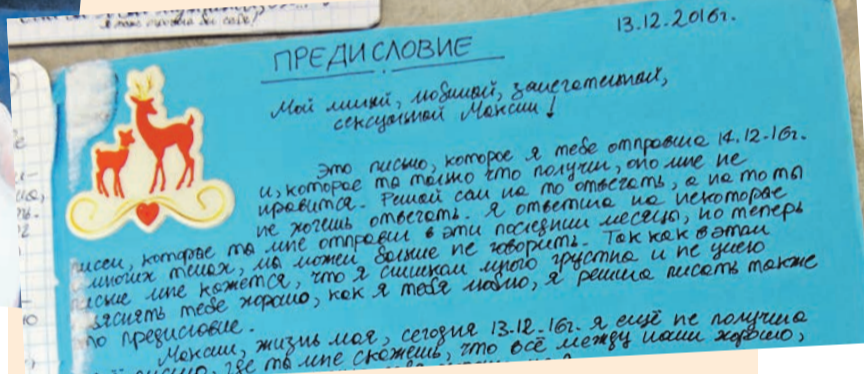 13.12.2016г.
ПРЕДИСЛОВИЕ
Мой милый, любимый, замечательный,
сексуальный Максим!
Это письмо, которое я тебе отправила 14.12.16г.
и, которое ты только что получил, оно мне не
нравится. Решай сам на то отвечать, а на то ты
не хочешь отвечать. Я ответила на некоторые
письма, которые ты мне отправил в эти последнии месецы, но теперь
многих темах, мы можем больше не говорить. Так как в этом
письме мне кажется, что я слишком много грустна и не умею
яснять тебе хорошо, как я тебя люблю, я решила писать также
это предисловие.
Максим, жизнь моя, сегодня 13.12.16г. я ещё не получила
письмо, где ты мне скажешь, что всё между нами хорошо,